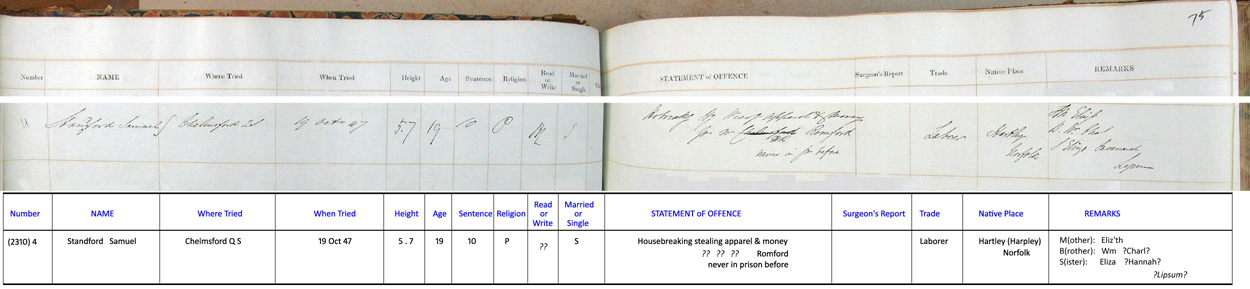 75
Number NAME Where Tried When Tried Height Age Sentence Religion Read or Write Married or Single STATEMENT of OFFENCE Surgeon's Report Trade Native Place REMARKS
Standford Samuel Chelmsford QS 19 Octr 47 5.7 19 10 P S Labourer Hartley Norfolk
Romford
never in pr before
Number NAME Where Tried When Tried Height Age Sentence Religion Read or Write Married or Single STATEMENT of OFFENCE Surgeon's Report Trade Native Place REMARKS
(2310) 4 Standford Samuel Chelmsford Q S 19 Oct 47 5 . 7 19 10 P ?? S Housebreaking stealing apparel & money Laborer Hartley (Harpley) M(other): Eliz'th
?? ?? ?? Romford Norfolk B(rother): Wm ?Charl?
never in prison before S(ister): Eliza ?Hannah?
?Lipsum?